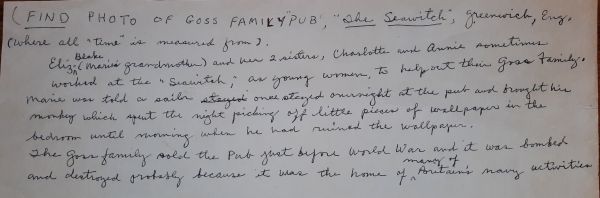 (FIND PHOTO OF GOSS FAMILY "PUB", "The Seawitch", Greenwich, Eng.
(where all "time" is measured from).
Eliz. Beake (Marie's grandmother) and her 2 sisters, Charlotte and Annie sometimes
worked at the "Seawitch", as young women, to help out their Goss family.
Marie was told a sailor stayed once stayed overnight at the pub and brought his
monkey which spent the night picking off little pieces of wallpaper in the
bedroom until morning when he had ruined the wallpaper.
The Goss family sold the Pub just before World War and it was bombed
and destroyed probably because it was the home of many of Britain's navy activities